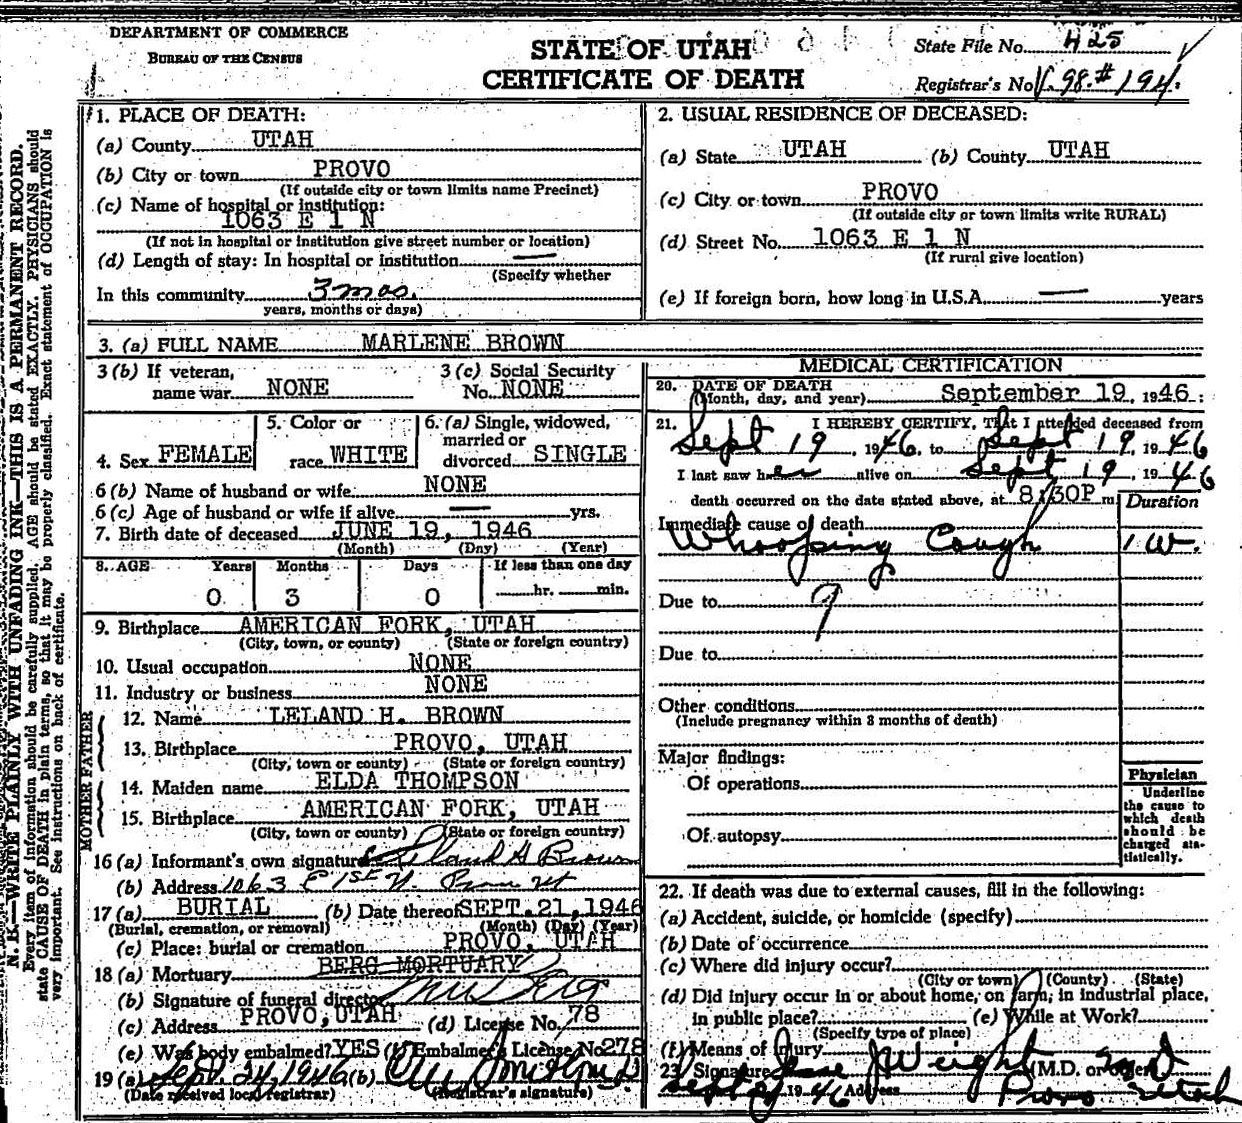 DEPARTMENT OF COMMERCE
BUREAU OF THE CENSUS
STATE OF UTAH
CERTIFICATE OF DEATH
State File No. 425
Registrar's No. 98 # 194
N. B.—WRITE PLAINLY WITH UNFADING INK—THIS IS A PERMANENT RECORD.
Every item of information should be carefully supplied. AGE should be stated EXACTLY. PHYSICIANS should
state CAUSE OF DEATH in plain terms, so that it may be properly classified. Exact statement of OCCUPATION is
very important. See instructions on back of certificate.
1. PLACE OF DEATH:
(a) County UTAH
(b) City or town PROVO
(If outside city or town limits name Precinct)
(c) Name of hospital or institution:
1063 E 1 N
(If not in hospital or institution give street number or location)
(d) Length of stay: In hospital or institution —
(Specify whether
In this community 3 mos.
years, months or days)
2. USUAL RESIDENCE OF DECEASED:
(a) State UTAH (b) County UTAH
(c) City or town PROVO
(If outside city or town limits write RURAL)
(d) Street No. 1063 E 1 N
(If rural give location)
(e) If foreign born, how long in U.S.A. — years
3. (a) FULL NAME MARLENE BROWN
3 (b) If veteran, name war NONE
3 (c) Social Security No. NONE
4. Sex FEMALE
5. Color or race WHITE
6. (a) Single, widowed, married or divorced SINGLE
6 (b) Name of husband or wife NONE
6 (c) Age of husband or wife if alive — yrs.
7. Birth date of deceased JUNE 19, 1946
(Month) (Day) (Year)
8. AGE Years Months Days If less than one day
0 3 0 hr. min.
9. Birthplace AMERICAN FORK, UTAH
(City, town, or county) (State or foreign country)
10. Usual occupation NONE
11. Industry or business NONE
FATHER
12. Name LELAND H. BROWN
13. Birthplace PROVO, UTAH
(City, town or county) (State or foreign country)
MOTHER
14. Maiden name ELDA THOMPSON
15. Birthplace AMERICAN FORK, UTAH
(City, town or county) (State or foreign country)
16 (a) Informant's own signature Leland H Brown
(b) Address 1063 E 1st N. Provo Ut
17 (a) BURIAL (b) Date thereof SEPT. 21, 1946
(Burial, cremation, or removal) (Month) (Day) (Year)
(c) Place: burial or cremation PROVO, UTAH
18 (a) Mortuary BERG MORTUARY
(b) Signature of funeral director
(c) Address PROVO, UTAH (d) License No. 78
(e) Was body embalmed? YES (f) Embalmer's License No 278
19 (a) Sept. 24, 1946 (b)
(Date received local registrar) (Registrar's signature)
MEDICAL CERTIFICATION
20. DATE OF DEATH
(Month, day, and year) September 19, 1946
21. I HEREBY CERTIFY, That I attended deceased from
Sept 19, 1946, to Sept 19, 1946
I last saw her alive on Sept 19, 1946
death occurred on the date stated above, at 8:30P m
Duration
Immediate cause of death
Whooping Cough 1 w.
Due to 9
Due to
Other conditions
(Include pregnancy within 3 months of death)
Major findings:
Of operations
Of autopsy
Physician
Underline
the cause to
which death
should be
charged sta-
tistically.
22. If death was due to external causes, fill in the following:
(a) Accident, suicide, or homicide (specify)
(b) Date of occurrence
(c) Where did injury occur?
(City or town) (County) (State)
(d) Did injury occur in or about home, on farm, in industrial place,
in public place? (e) While at Work?
(Specify type of place)
(f) Means of Injury
23. Signature J Weight (M.D. or other)
Sept 1946 Address Provo Utah